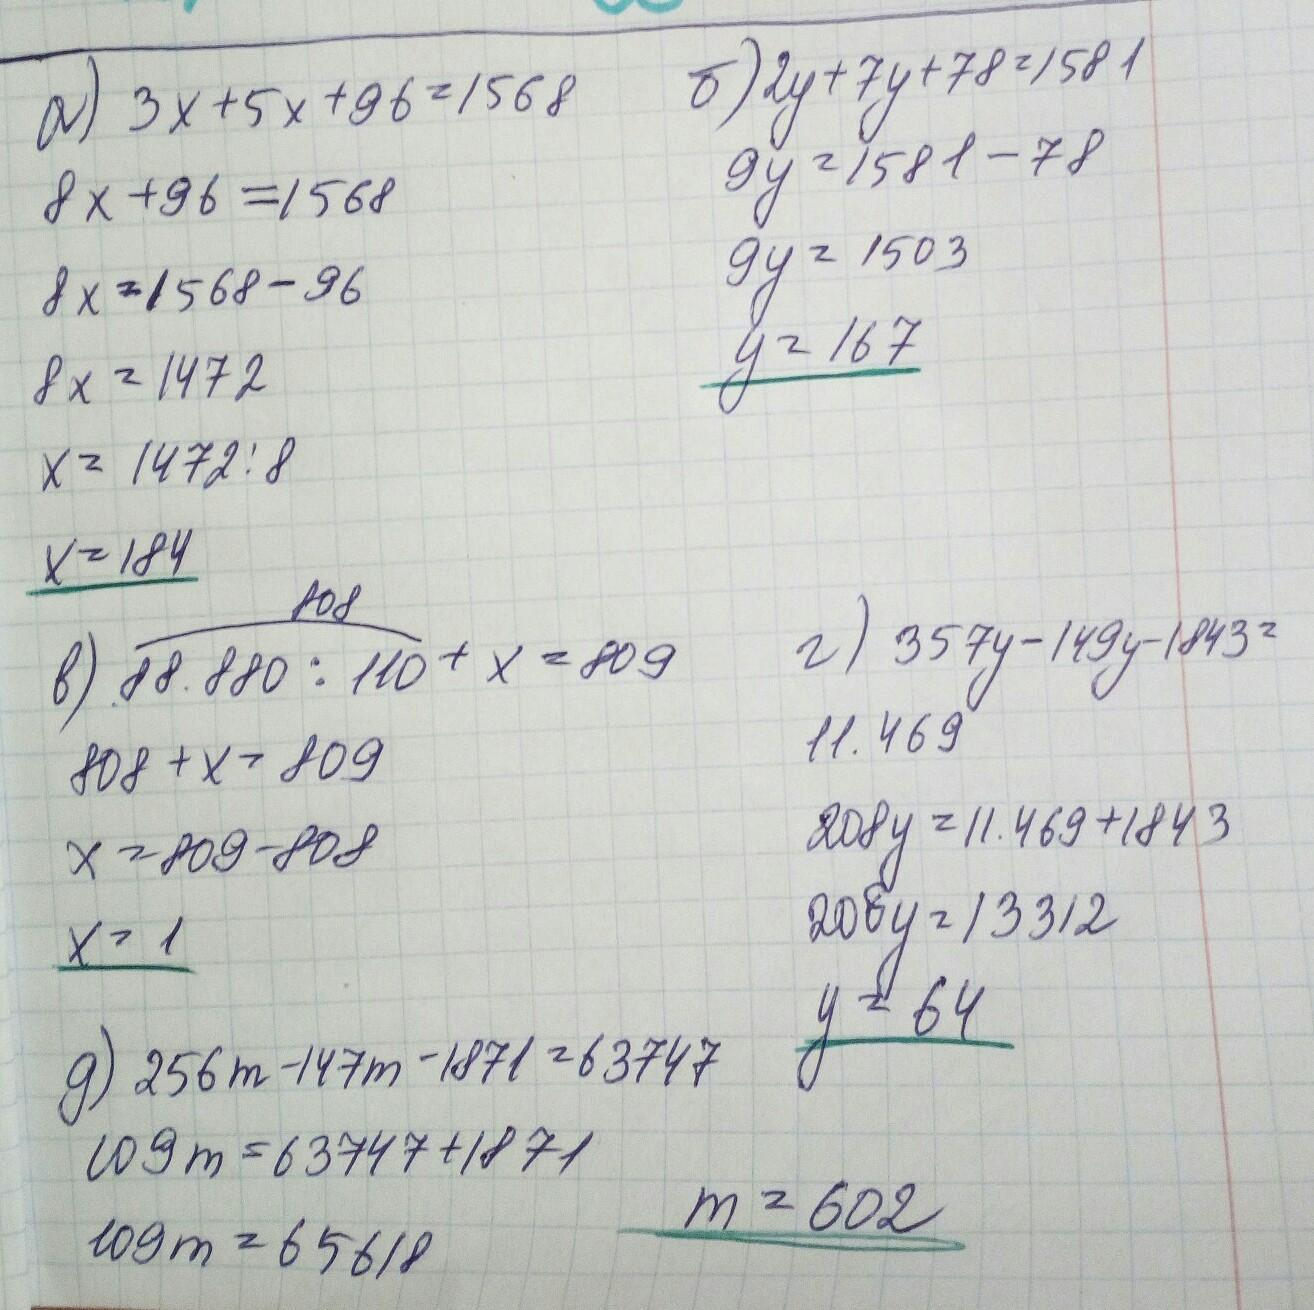 а) 3x+5x+96=1568
8x+96=1568
8x=1568-96
8x=1472
x=1472:8
x=184
б) 2y+7y+78=1581
9y=1581-78
9y=1503
y=167
808
в) 88.880:110+x=809
808+x=809
x=809-808
x=1
г) 357y-149y-1843=
11.469
208y=11.469+1843
208y=13312
y=64
д) 256m-147m-1871=63747
109m=63747+1871
109m=65618
m=602